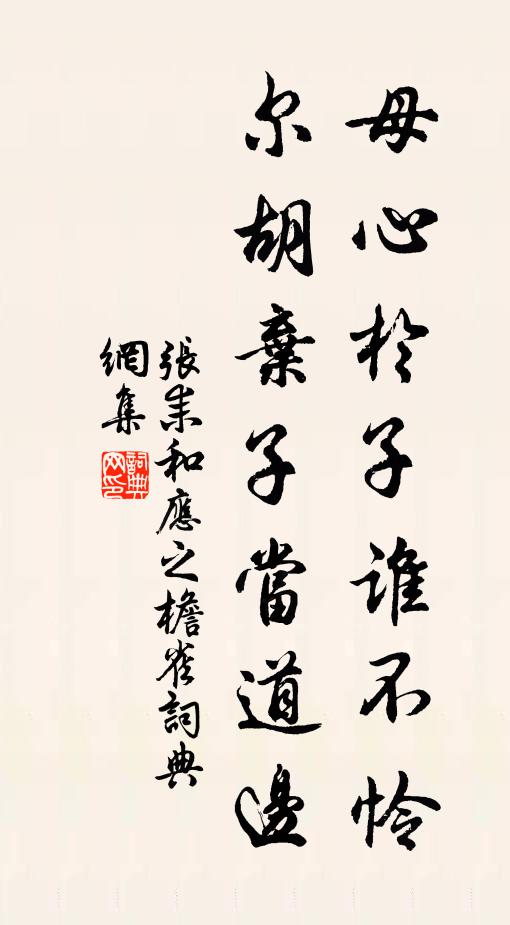 母心於子誰不怜
尔胡棄子當道邊
張耒和應之檐雀詞典
網集
詞典網印